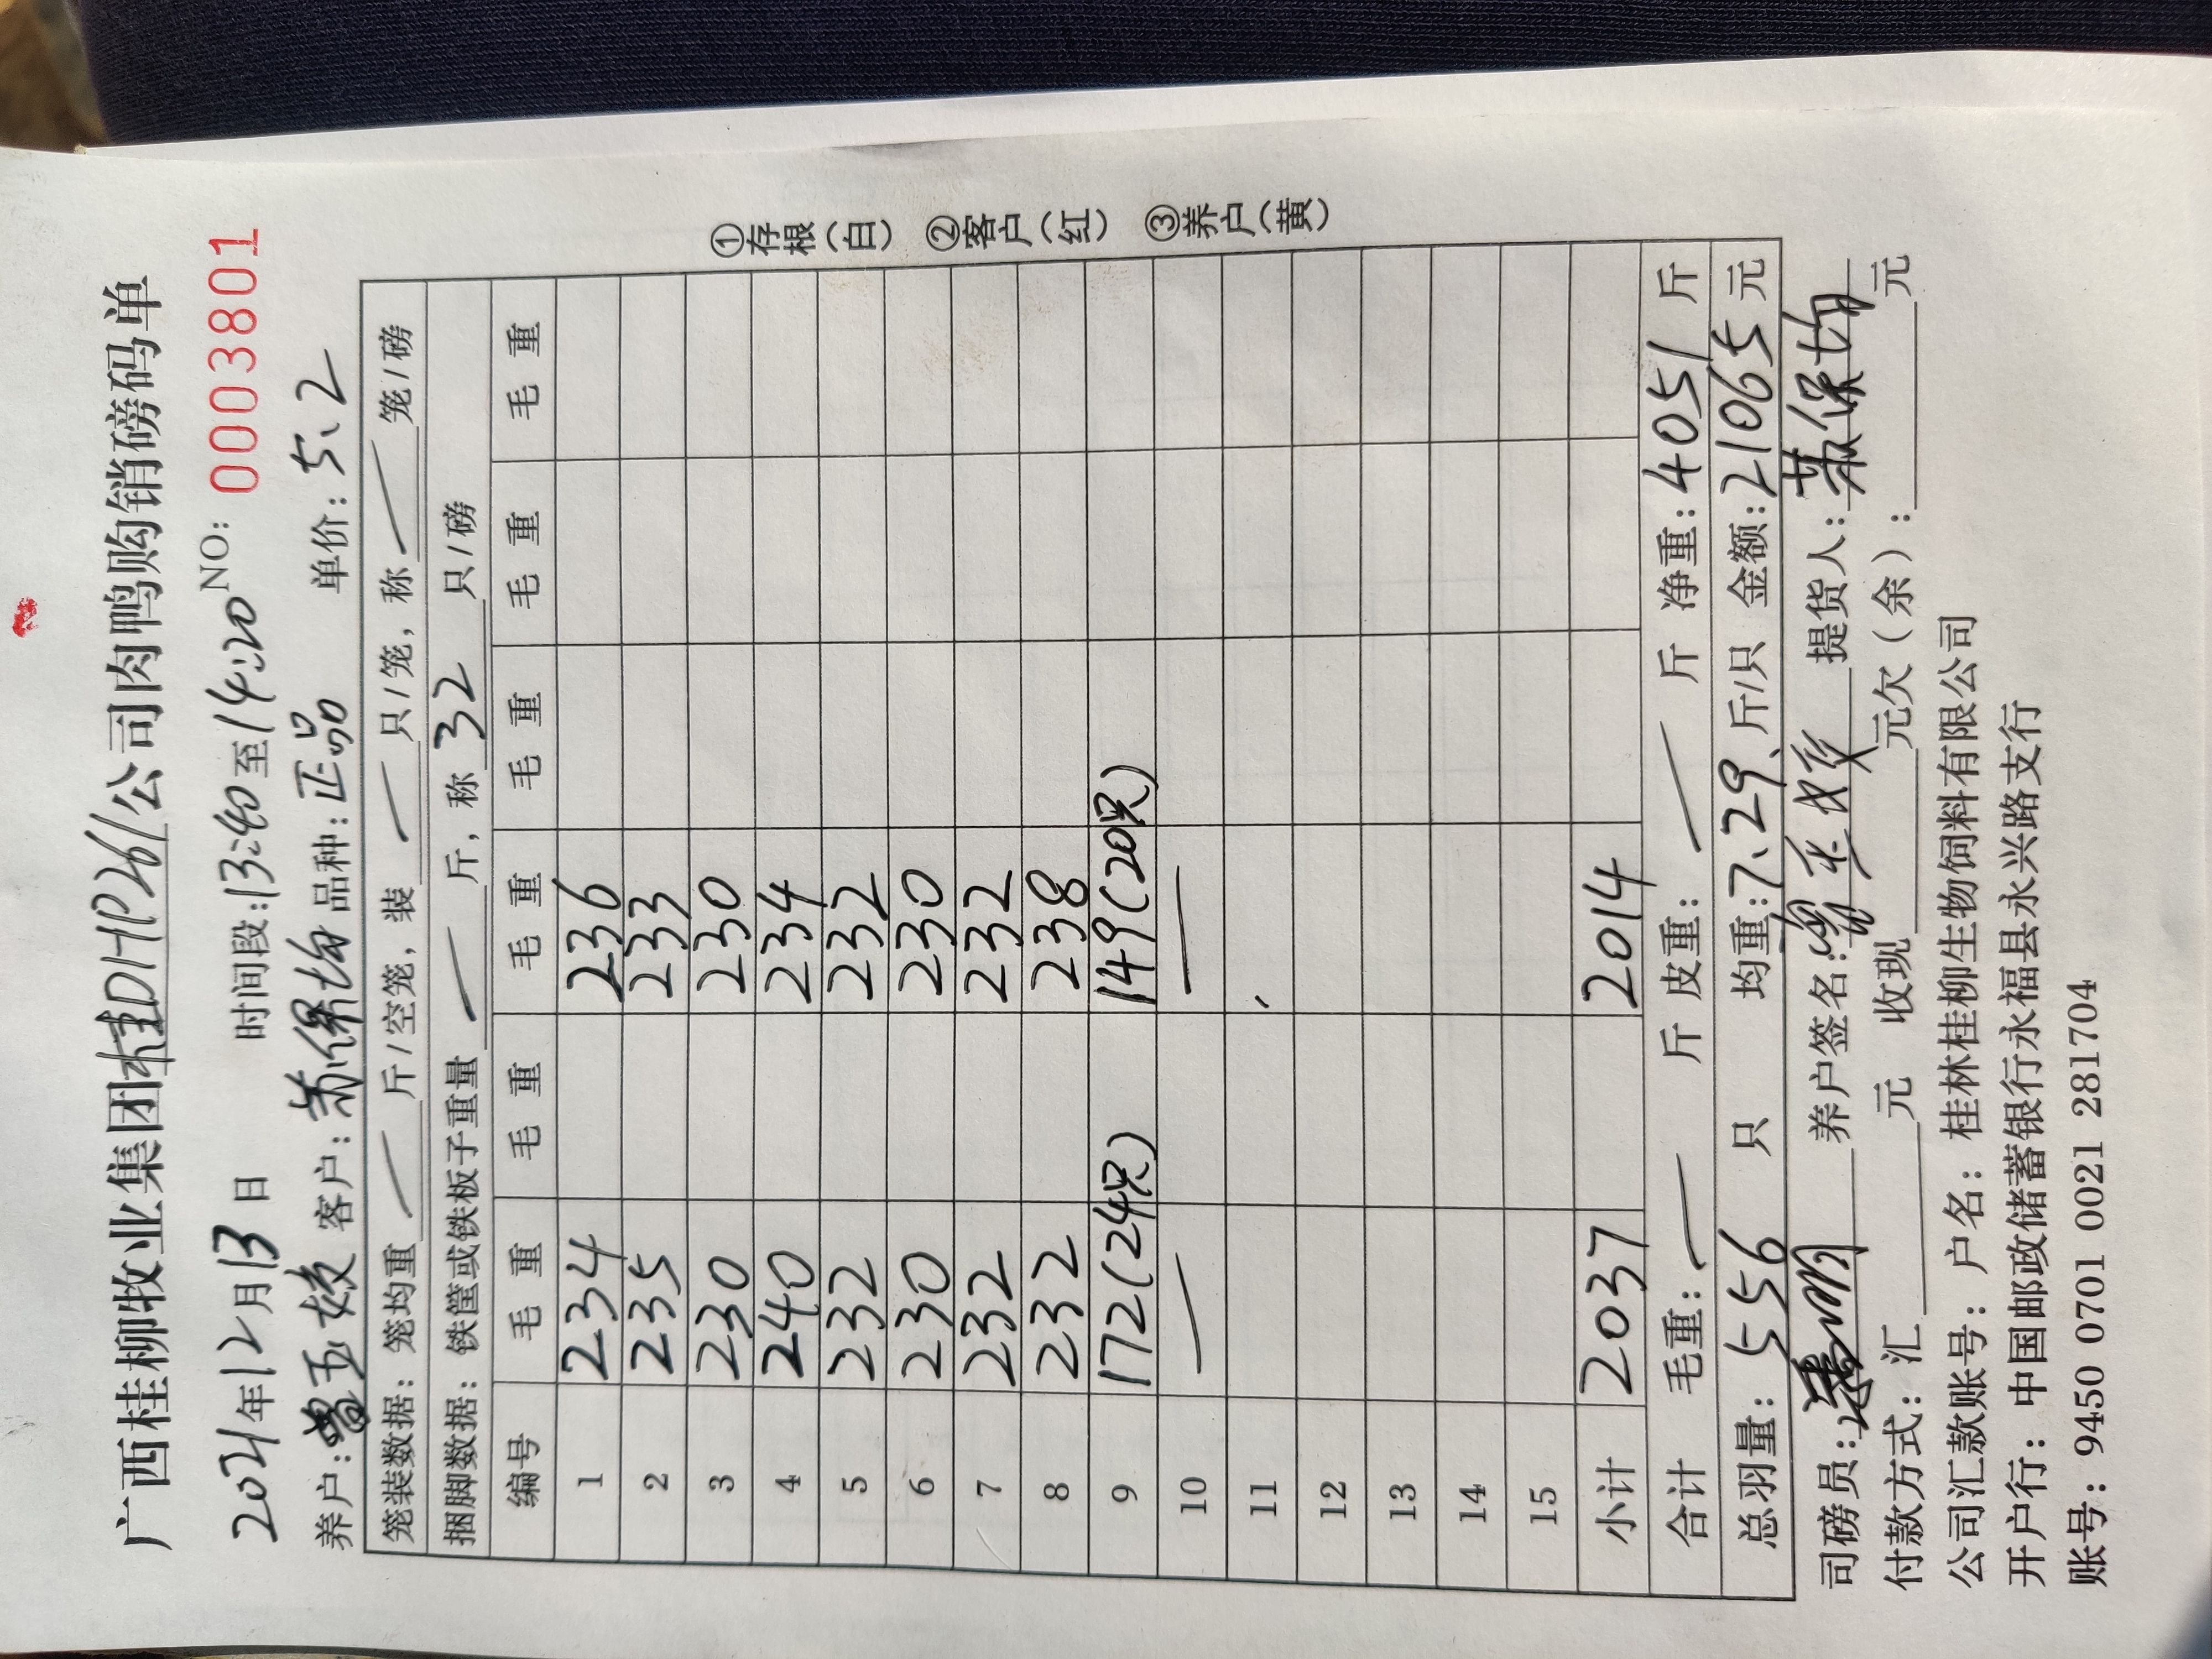 广西桂柳牧业集团桂DHP261公司肉鸭购销磅码单
2021年12月13日 时间段:13:40至14:20 NO: 0003801
养户:曾玉姣 客户:苏保均 品种:正品 单价:5.2
笼装数据: 笼均重 — 斤/空笼,装 — 只/笼,称 — 笼/磅
捆脚数据: 铁筐或铁板子重量 — 斤,称 32 只/磅
编号 毛重 毛重 毛重 毛重 毛重 毛重
1 234 236
2 235 233
3 230 230
4 240 234
5 232 232
6 230 230
7 232 232
8 232 238
9 172(24只) 149(20只)
10 — —
11
12
13
14
15
小计 2037 2014
合计 毛重: — 斤 皮重: — 斤 净重: 4051 斤
总羽量: 556 只 均重: 7.29 斤/只 金额: 21065 元
司磅员: 养户签名: 曾玉姣 提货人: 苏保均
付款方式: 汇 元 收现 元欠(余): 元
公司汇款账号: 户名: 桂林桂柳生物饲料有限公司
开户行: 中国邮政储蓄银行永福县永兴路支行
账号: 9450 0701 0021 281704
①存根(白) ②客户(红) ③养户(黄)